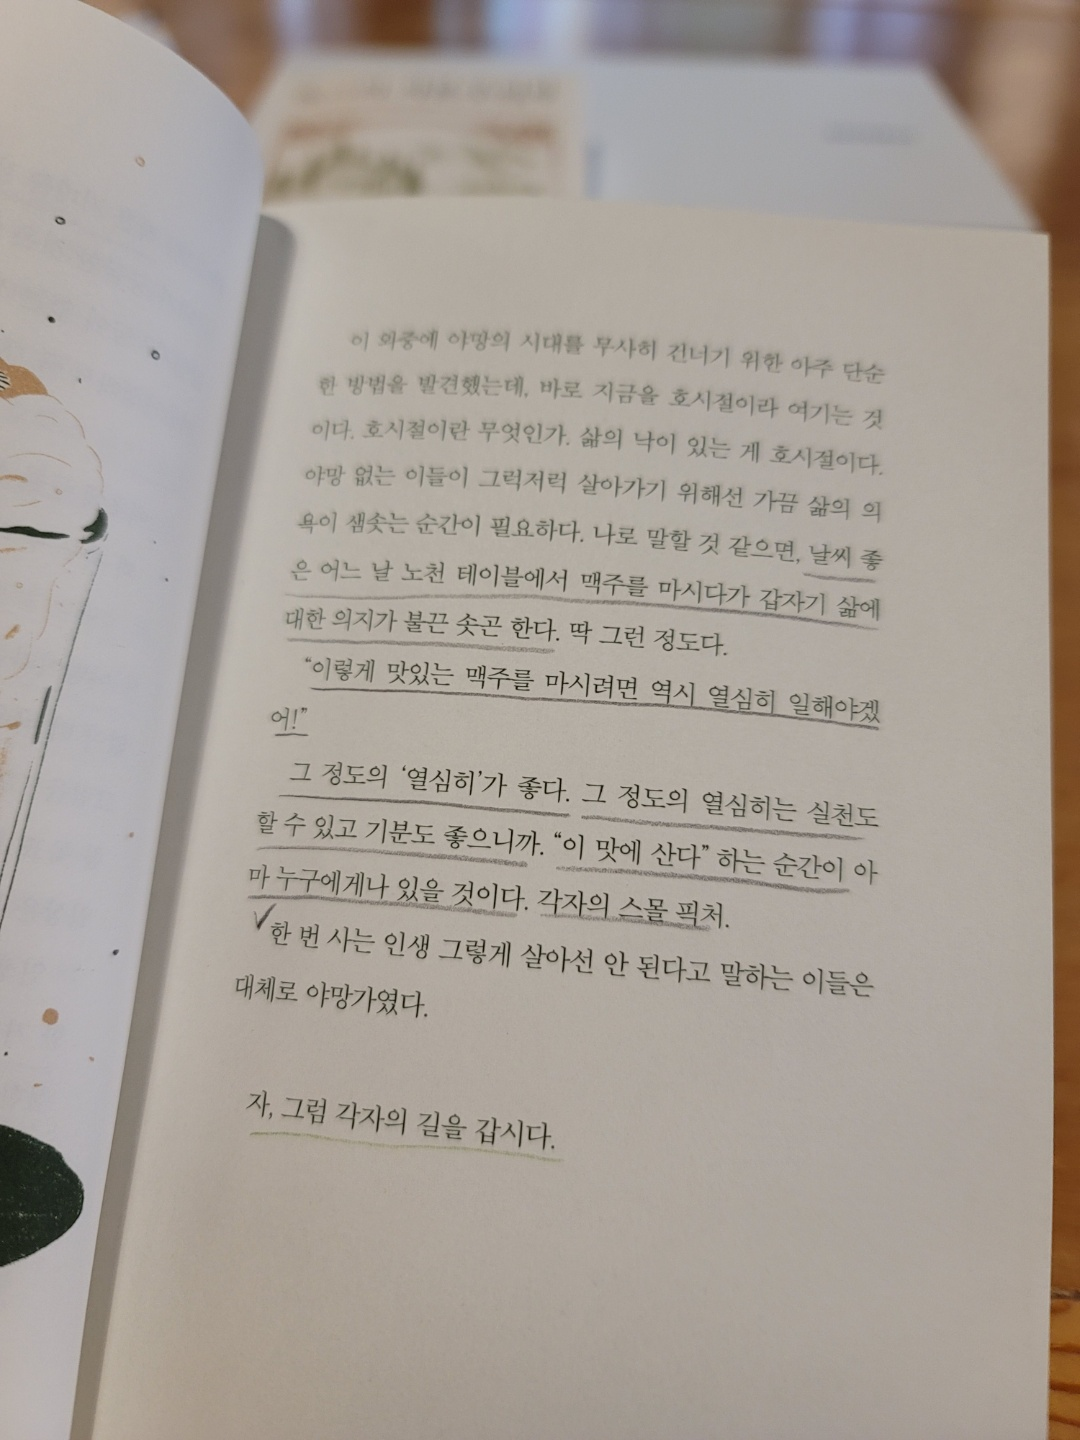 이 와중에 야망의 시대를 무사히 건너기 위한 아주 단순
한 방법을 발견했는데, 바로 지금을 호시절이라 여기는 것
이다. 호시절이란 무엇인가. 삶의 낙이 있는 게 호시절이다.
야망 없는 이들이 그럭저럭 살아가기 위해선 가끔 삶의 의
욕이 샘솟는 순간이 필요하다. 나로 말할 것 같으면, 날씨 좋
은 어느 날 노천 테이블에서 맥주를 마시다가 갑자기 삶에
대한 의지가 불끈 솟곤 한다. 딱 그런 정도다.
“이렇게 맛있는 맥주를 마시려면 역시 열심히 일해야겠
어!”
그 정도의 ‘열심히’가 좋다. 그 정도의 열심히는 실천도
할 수 있고 기분도 좋으니까. “이 맛에 산다” 하는 순간이 아
마 누구에게나 있을 것이다. 각자의 스몰 픽처.
한 번 사는 인생 그렇게 살아선 안 된다고 말하는 이들은
대체로 야망가였다.
자, 그럼 각자의 길을 갑시다.